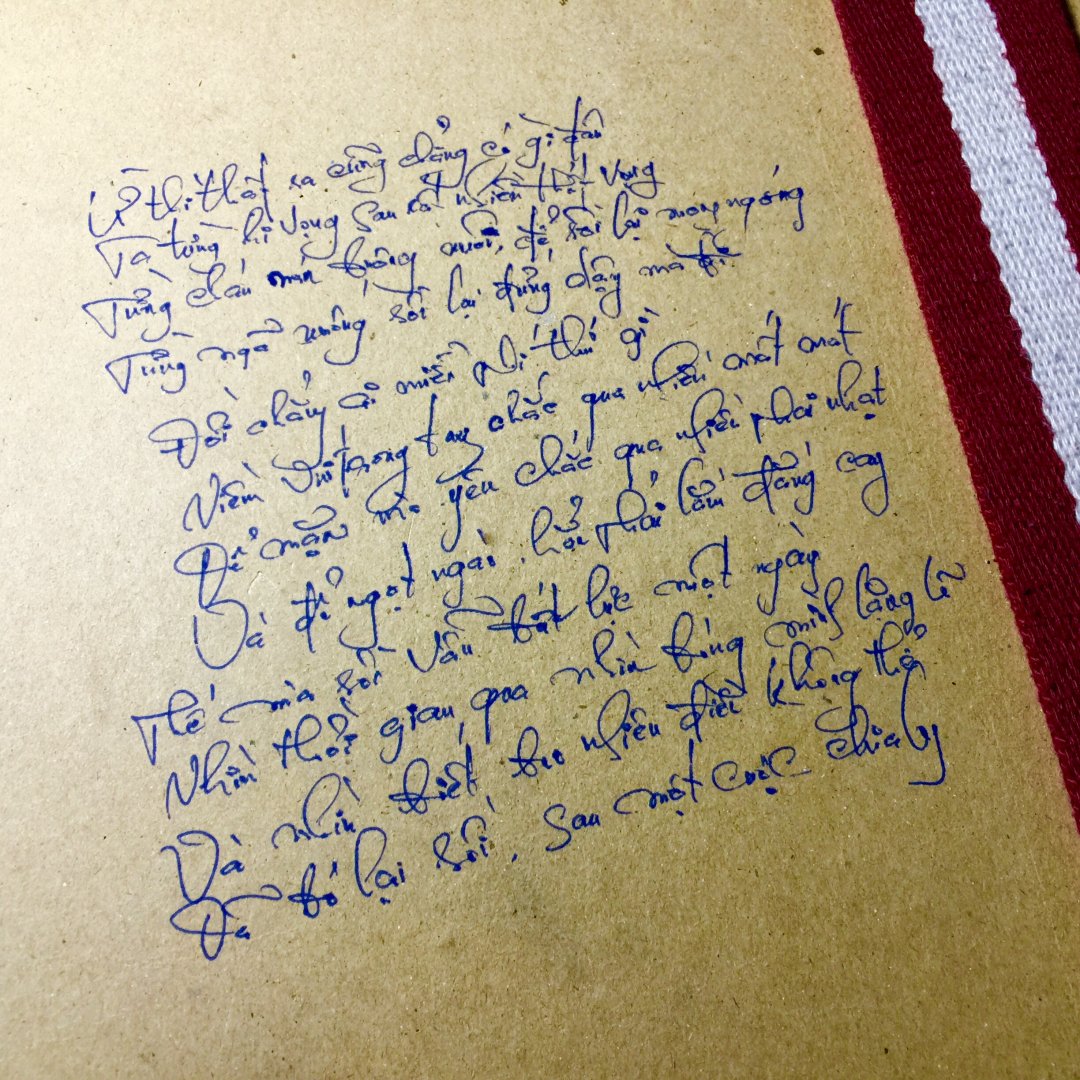 Ừ thì thật ra cũng chẳng có gì đâu
Ta từng hi vọng sau rất nhiều thất vọng
Từng chán nản buông xuôi, để rồi lại mong ngóng
Từng ngã xuống rồi lại đứng dậy mà đi
Đời chẳng ai miễn phí thứ gì
Niềm vui trong tay chắc qua nhiều mất mát
Để mặn mà yêu chắc qua nhiều phai nhạt
Và để ngọt ngào, hẳn phải lắm đắng cay
Thế mà rồi vẫn bất lực một ngày
Nhìn thời gian qua nhìn bóng mình lặng lẽ
Và nhìn biết bao nhiêu điều không thể
Đã bỏ lại rồi, sau một cuộc chia ly